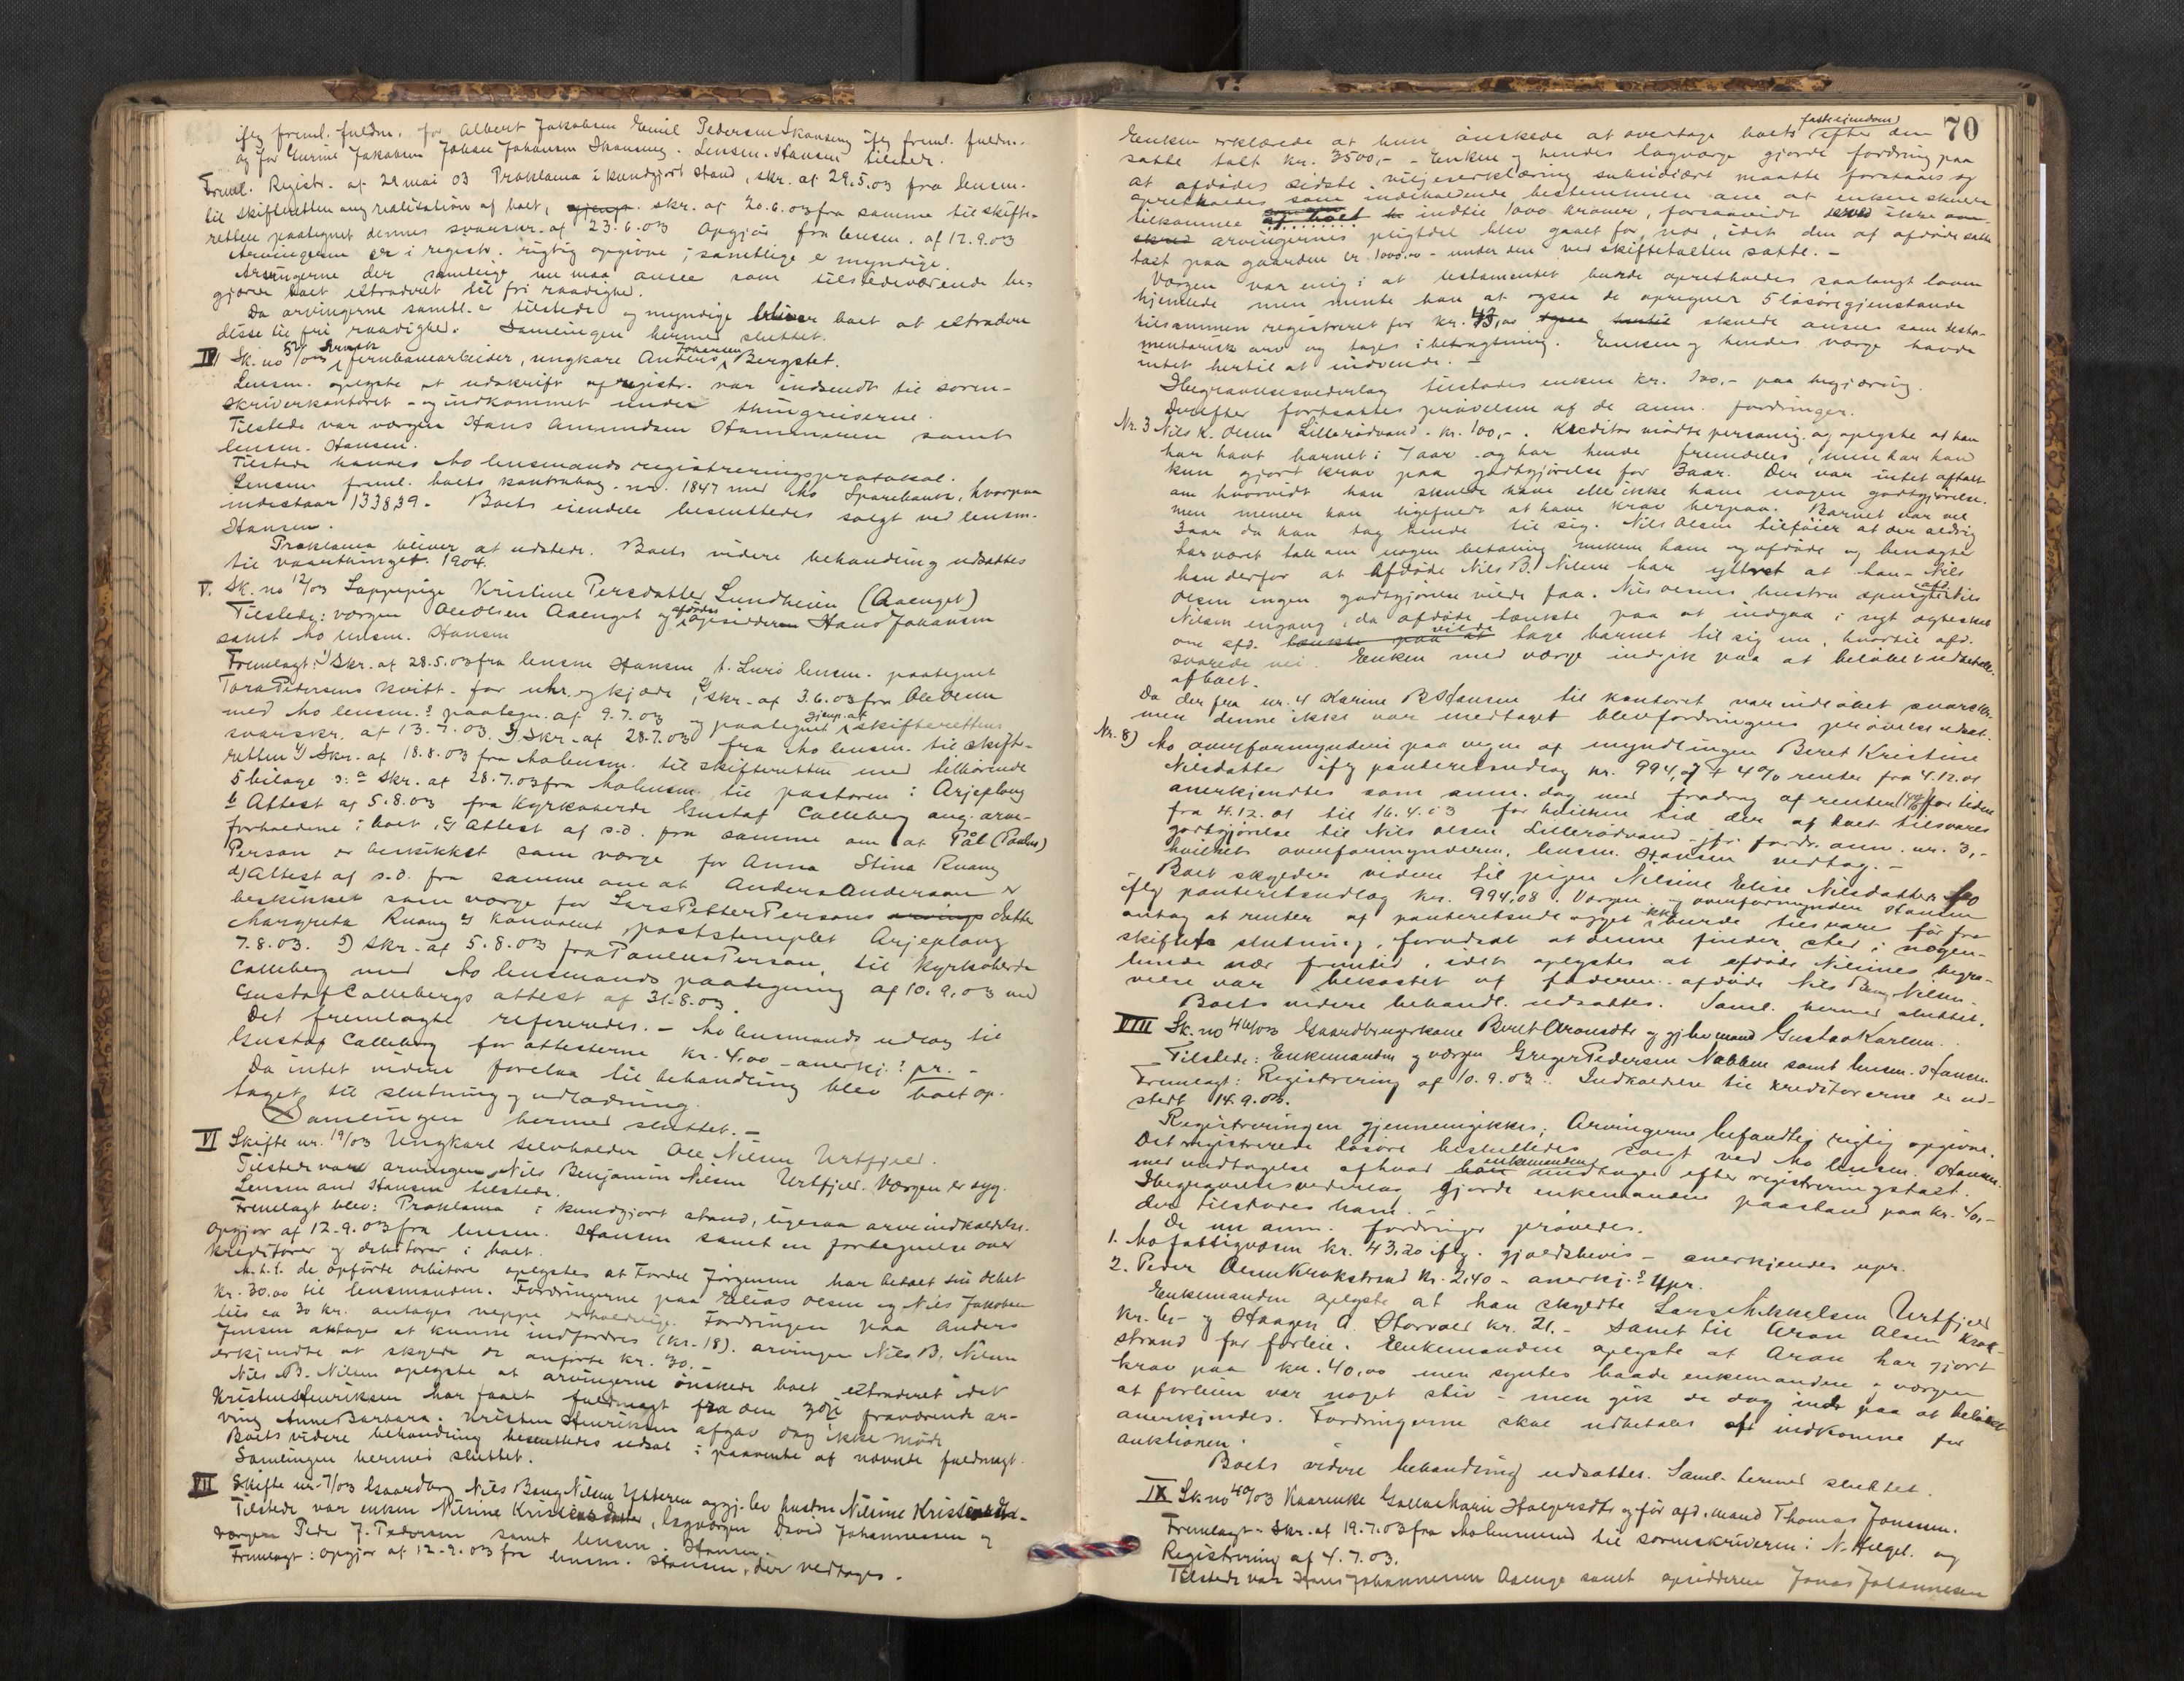 ifg freml. fuldm. for Albert Jakobsen Emil Pedersen Skonseng ifg freml. fuldm.
og for Gurine Jakobsen Johan Johansen Skonseng. Lensm. Hansen tilstede.
Freml. Registr. af 29 mai 03 Proklama i kundgjort stand, skr. af 29.5.03 fra lensm.
til skifteretten ang realisation af boet, skr. af 20.6.03 fra samme til skifte-
retten paategnet dennes svarskr. af 23.6.03 Opgjør fra lensm. af 12.9.03
Arvingerne er i registr. rigtig opgivne; samtlige er myndige.
Arvingerne der samtlige nu maa ansees som tilstedeværende be-
gjærer boet extraderet til fri raadighed.
Da arvingerne samtl. er tilstede og myndige bliver boet at extradere
disse til fri raadighed. Samlingen hermed sluttet.
IV Sk. no 52/03 Svensk jernbanearbeider, ungkarl Anders Johansen Bergstet.
Lensm. oplyste at udskrift af registr. var indsendt til soren-
skriverkontoret - og indkommet under thingreiserne.
Tilstede var værgen Hans Amundsen Hammeren samt
lensm. Hansen.
Tilstede havdes Mo lensmands registreringsprotokol.
Lensm freml. boets kontrabog nr. 1847 med Mo Sparebank, hvorpaa
indestaar 133839. Boets eiendele besluttedes solgt ved lensm.
Hansen.
Proklama bliver at udstede. Boets videre behandling udsattes
til vaarthinget 1904.
V. Sk. no 12/03 Lappepige Kristine Persdatter Lundheim (Aaenget)
Tilstede: værgen Ole Olsen Aaenget og afdødes opsidder Hans Johansen
samt Mo lensm. Hansen
Fremlagt: 1) Skr. af 28.5.03 fra lensm Hansen t. Lurö lensm. paategnet
Tora Pedersens kvitt. for uhr og kjæde, 2) skr. af 3.6.03 fra Ole Olsen
med Mo lensm.s paategn. af 9.7.03 og paategnet gjenp. af skifterettens
svarskr. af 13.7.03. 3) Skr. af 28.7.03 fra Mo lensm. til skifte-
retten 4) Skr. af 18.8.03 fra Molensm. til skifteretten med tilhørende
5 bilage s: a Skr. af 28.7.03 fra Molensm. til pastoren i Arjeplong
b Attest af 5.8.03 fra Kyrkoherde Gustaf Calleberg ang. arve-
forholdene i boet, c) Attest af s.d. fra samme om at Pål (Paulus)
Person er beskikket som værge for Anna Stina Ruong
d) Attest af s.d. fra samme om at Anders Anderson er
beskikket som værge for Lars Petter Persons datter
Margreta Ruong e) konvolut, poststemplet Arjeplong
7.8.03. 5) Skr. af 5.8.03 fra Paulus Person, til Kyrkoherde
Calleberg med Mo lensmands paategning af 10.9.03 med
Gustaf Callebergs attest af 31.8.03
Det fremlagte refereredes. - Mo lensmands udlæg til
Gustaf Calleberg for attesterne kr. 4.00 - anerkj.s pr. -
Da intet videre forelaa til behandling blev boet op-
taget til slutning og udlodning.
Samlingen hermed sluttet. -
VI Skifte nr. 19/03 Ungkarl selveier Ole Nilsen Urtfjeld.
Tilstede var arvingen Nils Benjamin Nilsen Urtfjeld. Værgen er syg.
Lensmand Hansen tilstede.
Fremlagt blev: Proklama i kundgjort stand, ligesaa arveindkaldelse.
Opgjør af 12.9.03 fra lensm. Hansen samt en fortegnelse over
kreditorer og debitorer i boet.
M.h.t. de opførte debitorer oplystes at Tordel Jørgensen har betalt sin debet
kr. 30.00 til lensmanden. Fordringerne paa Elias Olsen og Nils Jakobsen
tils ca 30 kr. antages neppe erholdelige. Fordringen paa Anders
Jensen antages at kunne indfordres (kr. 18). arvingen Nils B. Nilsen
erkjendte at skylde de anførte kr. 30.-
Nils B. Nilsen oplyste at arvingerne ønskede boet extraderet idet
Kristen Henriksen har faaet fuldmagt fra den fraværende ar-
ving Anne Barbara. Kristen Henriksen afgav dog ikke møde
Boets videre behandling besluttedes udsat i paavente af nævnte fuldmagt.
Samlingen hermed sluttet.
VII Skifte nr. 7/03 Gaardbrg Nils Beng Nilsen Ytteren og gj. lev hustru Nilsine Kristensdtr.
Tilstede var enken Nilsine Kristensdatter, lagværgen David Johannessen og
værgen Peder J. Pedersen samt lensm. Hansen.
Fremlagt: Opgjør af 12.9.03 fra lensm. Hansen, der vedtoges.
70
Enken erklærede at hun ønskede at overtage boets faste eiendom efter den
satte taxt kr. 3500,- - Enken og hendes lagværge gjorde fordring paa
at afdødes sidste viljeserklæring subsidiært maatte forstaaes og
opretholdes som indeholdende bestemmelse om at enken skulde
tilkomme af boet indtil 1000 kroner, forsaavidt ikke
arvingernes pligtdel blev gaaet for nær, idet den af afdøde satte
taxt paa gaarden er 1000.00 - under den ved skiftetaxten satte. -
Værgen var enig i at testamentet burde opretholdes saalangt loven
hjemlede men mente han at ogsaa de opregnede 5 løsøregjenstande
tilsammen registreret for kr. 43,00 skulde ansees som testa-
mentarisk arv og tages i betragtning. Enken og hendes værge havde
intet hertil at indvende. -
I begravelsesvederlag tilstodes enken kr. 100,- paa begjæring.
Derefter fortsattes prøvelsen af de anm. fordringer.
Nr. 3 Nils K. Olsen Lillerødvand. kr. 100,-. Kreditor mødte personlig og oplyste at han
har havt barnet i 7 aar og har hende fremdeles, men har han
kun gjort krav paa godtgjørelse for 3 aar. Der var intet aftalt
om hvorvidt han skulde have eller ikke have nogen godtgjørelse.
men mener han ligefuldt at have krav herpaa. Barnet var vel
3 aar da han tog hende til sig. Nils Olsen tilføier at der aldrig
har været tale om nogen betaling mellem ham og afdøde og benægter
han derfor at Afdøde Nils B. Nilsen har yttret at han - Nils
Olsen ingen godtgjørelse vilde faa. Nils Olsens hustru spurgte afd Nils
Nilsen engang, da afdøde tænkte paa at indgaa i nyt ægteskab
om afd. vilde tage barnet til sig nu, hvortil afd.
svarede nei. Enken med værge indgik paa at beløbet udbetales
af boet.
Da der fra nr. 4 Karine B Hansen til kontoret var indløbet svarskr.
men denne ikke var medtaget blev fordringens prøvelse udsat.
Nr. 8) Mo overformynderi paa vegne af myndlingen Beret Kristine
Nilsdatter ifg panteretsudlæg kr. 994,07 + 4% renter fra 4.12.01
anerkjendtes som anm. dog med fradrag af renter for tiden
fra 4.12.01 til 16.4.03 for hvilken tid der af boet tilsvares
godtgjørelse til Nils Olsen Lillerødvand jfr fordr. anm. nr. 3,-
hvilket overformynderen, lensm. Hansen vedtog. -
Boet skylder videre til pigen Nilsine Elise Nilsdatter
ifg panteretsudlæg kr. 994.08. Værgen og overformynder Hansen
antog at renter af panteretsudlægget ikke burde tilsvares før fra
skiftets slutning, forudsat at denne finder sted i nogen-
lunde nær fremtid, idet oplystes at afdøde Nilsines begra-
velse var bekostet af faderen afdøde Nils Beng Nilsen.
Boets videre behandl. udsattes. Saml. hermed sluttet.
VIII Sk. no 46/03 Gaardbrugerkone Beret Aronsdtr og gj. lev mand Gustav Karlsen.
Tilstede: Enkemanden og værgen Greger Pedersen Nabben samt lensm. Hansen.
Fremlagt: Registrering af 10.9.03. Indkaldelse til kreditorerne er ud-
stedt 14.9.03.
Registreringen gjennemgikkes; Arvingerne befandtes rigtig opgivne.
Det registrerede løsøre besluttedes solgt ved Mo lensm. Hansen
med undtagelse af hvad enkemanden udtager efter registreringstaxt.
I begravelsesvederlag gjorde enkemanden paastand paa kr. 40,-
der tilstodes ham. -
De nu anm. fordringer prøvedes.
1. Mo fattigvæsen kr. 43,20 ifg. gjældsbevis - anerkjendes upr.
2. Peder Olsen Krokstrand kr. 2,40 - anerkj.s upr.
Enkemanden oplyste at han skyldte Lars Mikkelsen Urtfjeld
kr. 6,- og Haagen A. Storvold kr. 21.- samt til Aron Olsen Krok-
strand for forleie. Enkemanden oplyste at Aron har gjort
krav paa kr. 40,00 men syntes baade enkemanden og værgen
at forleien var noget stiv - men gik de dog ind paa at beløbet
anerkjendes. Fordringerne skal udbetales af indkomne for
auktionen.
Boets videre behandling udsattes. Saml. hermed sluttet.
IX Sk. no 40/03 Kaarenke Gollaskarin Holgersdtr og før afd. mand Thomas Jonssen.
Fremlagt - Skr. af 19.7.03 fra Molensmand til sorenskriveren i N. Helgel. og
Registrering af 4.7.03.
Tilstede var Hans Johannessen Aaenge samt opsidderen Jonas Johannesen